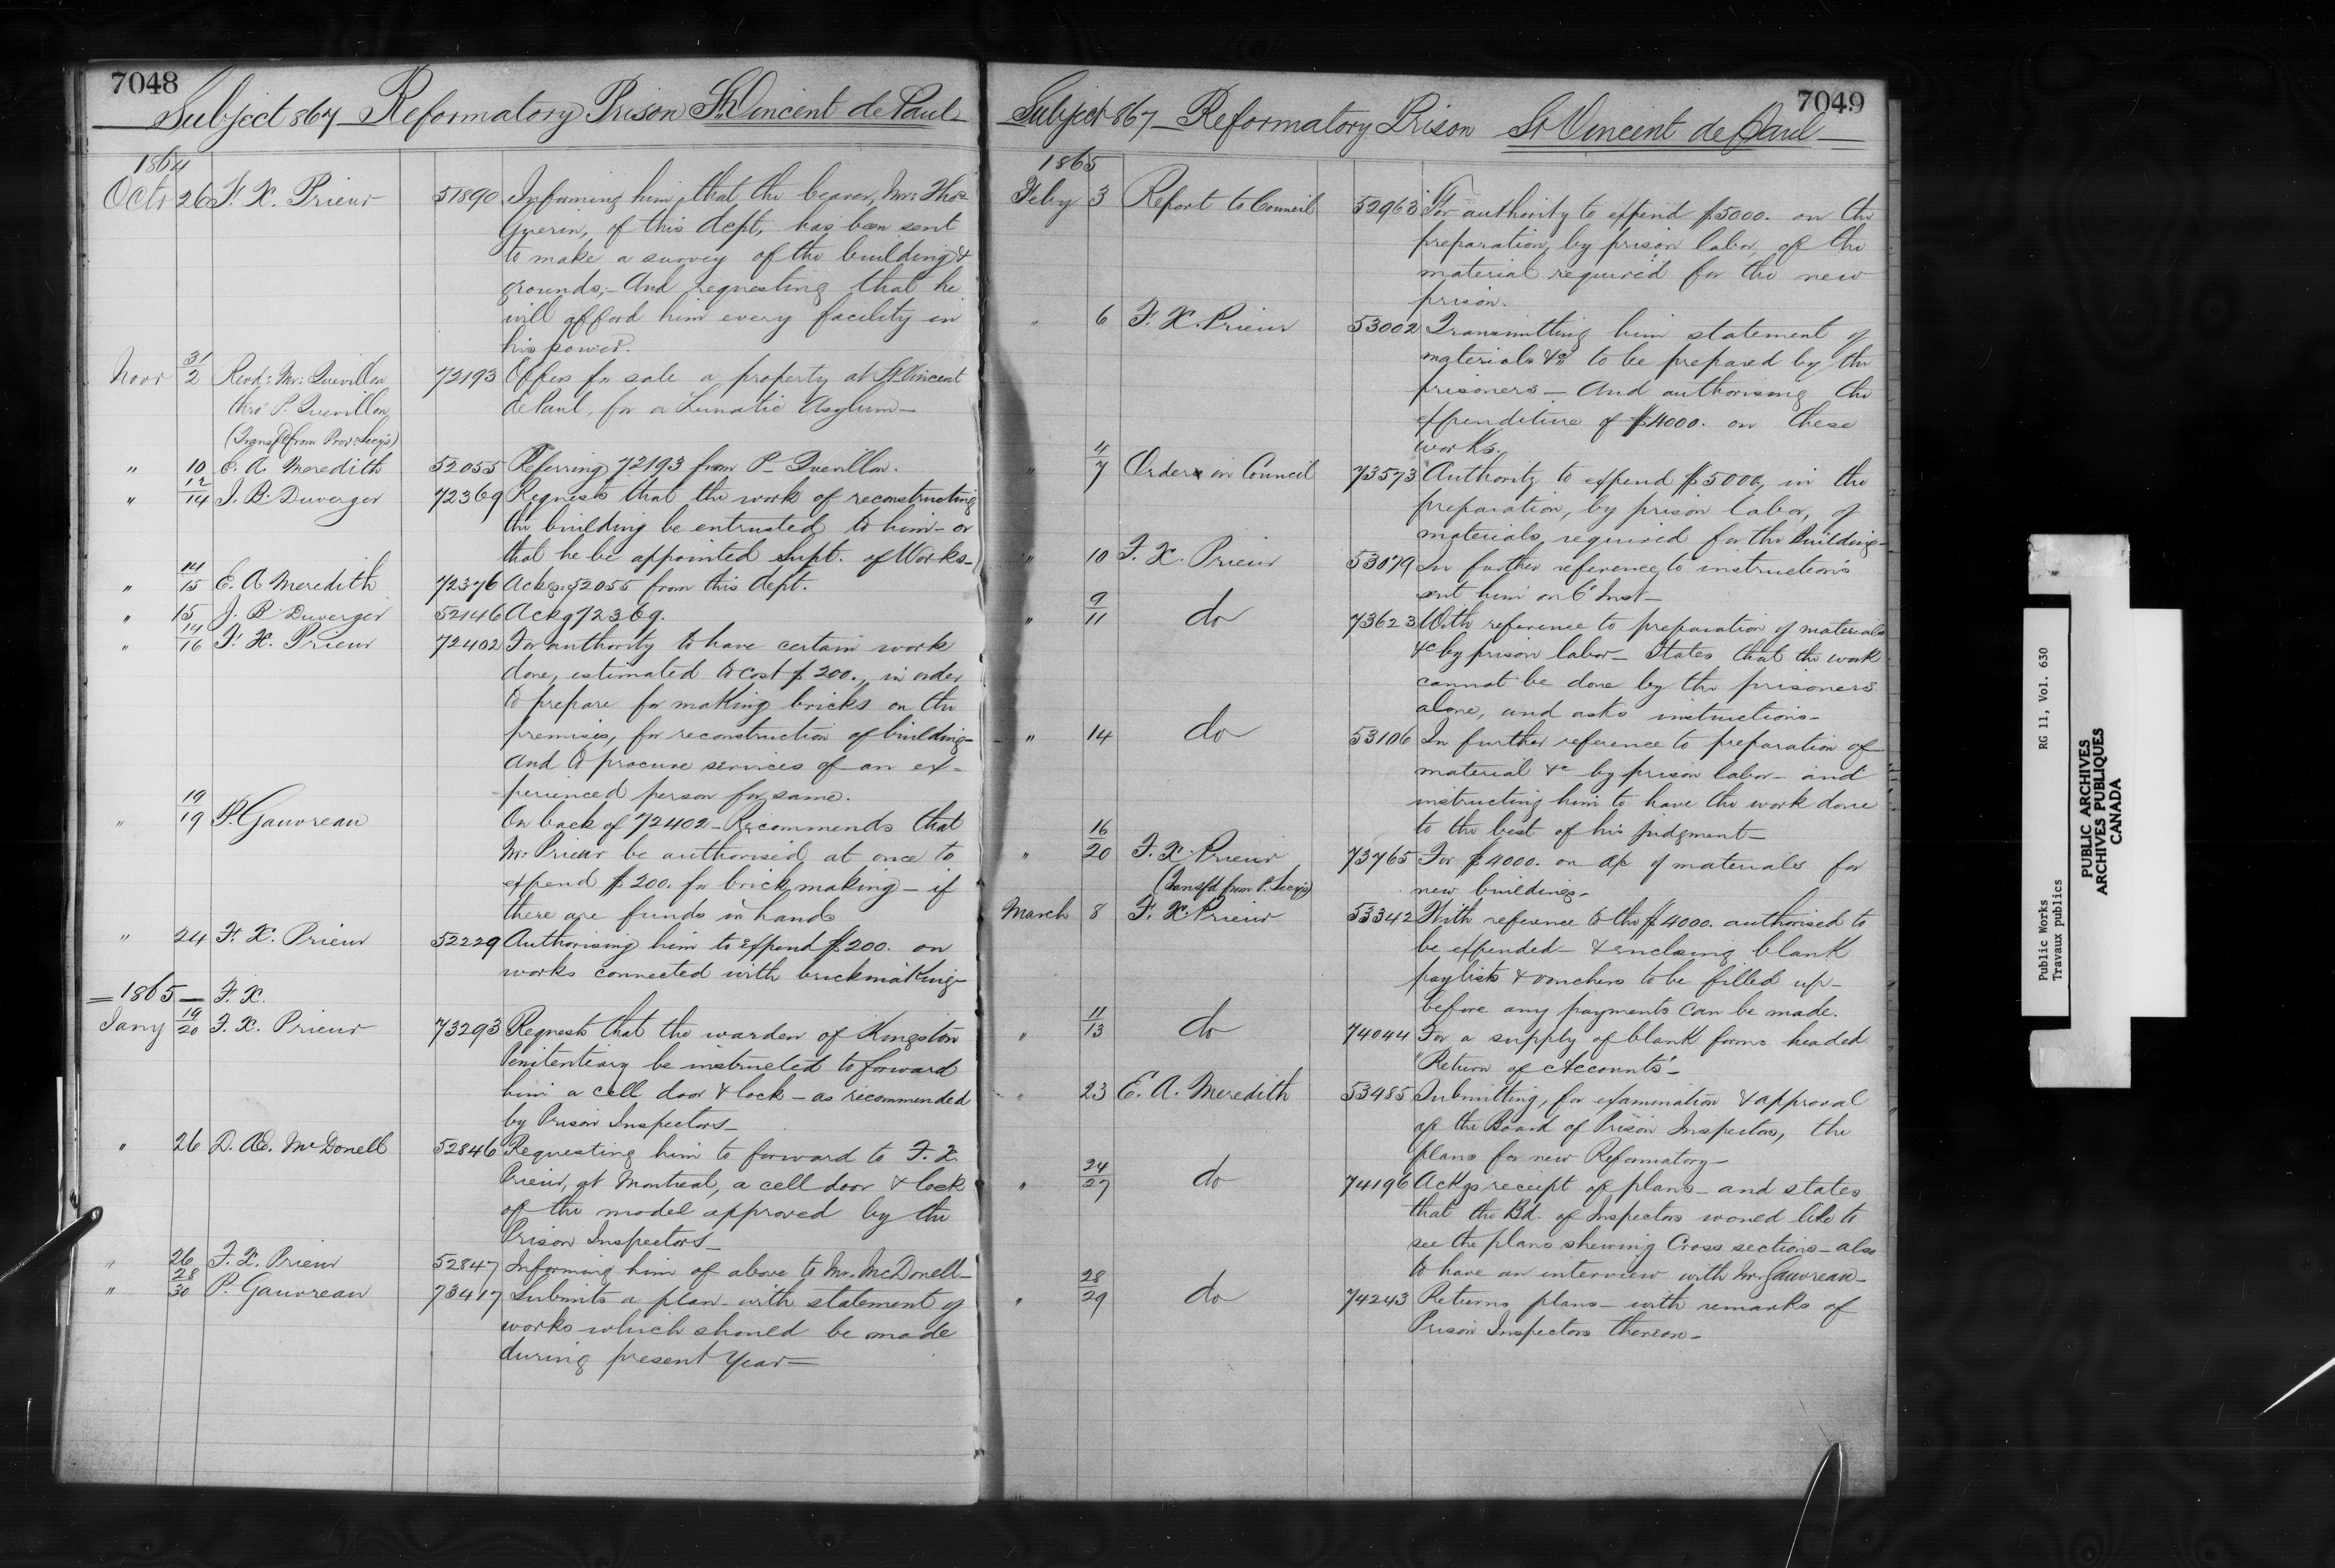 7048
Subject 867 - Reformatory Prison St. Vincent de Paul
1864
Octr 26 F. X. Prieur 51890 Informing him, that the bearer, Mr. Thos.
Guerin, of this dept, has been sent
to make a survey of the building &
grounds; - And requesting that he
will afford him every facility in
his power.
Novr 31/2 Revd: Mr: Quevillon 72193 Offers for sale a property at St Vincent
thro' P. Quevillon de Paul, for a Lunatic Asylum -
(Transfd from Prov: Secy's)
" 10 E. A. Meredith 52055 Referring 72193 from P. Quevillon.
" 12/14 J. B. Duverger 72369 Requests that the work of reconstructing
the building be entrusted to him - or
that he be appointed Supt. of Works -
" 14/15 E. A Meredith 72376 Ackgs. 52055 from this dept.
" 15 J. B Duverger 52146 Ackg 72369.
" 14/16 F. X. Prieur 72402 For authority to have certain work
done, estimated to cost $200., in order
to prepare for making bricks on the
premises, for reconstruction of building -
And to procure services of an ex-
perienced person for same.
" 19/19 P. Gauvreau On back of 72402 - Recommends that
Mr. Prieur be authorised at once to
expend $200. for brick making - if
there are funds in hand
" 24 F. X. Prieur 52229 Authorising him to Expend $200. on
works connected with brickmaking -
1865 - F. X.
Jany 19/20 F. X. Prieur 73293 Requests that the warden of Kingston
Penitentiary be instructed to forward
him a cell door & lock - as recommended
by Prison Inspectors -
" 26 D. Æ. McDonell 52846 Requesting him to forward to F. X.
Prieur, at Montreal, a cell door & lock
of the model approved by the
Prison Inspectors -
" 26 F. X. Prieur 52847 Informing him of above to Mr. McDonell -
" 28/30 P. Gauvreau 73417 Submits a plan - with statement of
works which should be made
during present year -
7049
Subject 867 - Reformatory Prison St Vincent de Paul -
1865
Feby 3 Report to Council 52963 For authority to expend $5000. on the
preparation, by prison labor, of the
material required for the new
prison.
" 6 F. X. Prieur 53002 Transmitting him statement of
materials &c to be prepared by the
prisoners - And authorising the
expenditure of $4000. on these
works.
" 4/7 Order in Council 73573 Authority to expend $5000, in the
preparation, by prison labor, of
materials required for the Building -
" 10 F. X. Prieur 53079 In further reference to instructions
sent him on 6 Inst -
" 9/11 do 73623 With reference to preparation of materials
&c by prison labor - States that the work
cannot be done by the prisoners
alone, and asks instructions -
" 14 do 53106 In further reference to preparation of
material &c by prison labor - and
instructing him to have the work done
to the best of his judgment -
" 16/20 F. X. Prieur 73765 For $4000. on a/c of materials for
(Transfd from P. Secy's) new buildings -
March 8 F. X. Prieur 53342 With reference to the $4000. authorised to
be expended - & enclosing blank
paylists & vouchers to be filled up -
before any payments can be made.
" 11/13 do 74044 For a supply of blank forms headed
"Return of Accounts" -
" 23 E. A. Meredith 53485 Submitting, for examination & approval
of the Board of Prison Inspectors, the
plans for new Reformatory -
" 24/27 do 74196 Ackgs receipt of plans - and states
that the Bd. of Inspectors would like to
see the plans shewing Cross sections - also
to have an interview with Mr. Gauvreau -
" 28/29 do 74243 Returns plans - with remarks of
Prison Inspectors thereon -
Public Works RG 11, Vol. 630
Travaux publics
PUBLIC ARCHIVES
ARCHIVES PUBLIQUES
CANADA